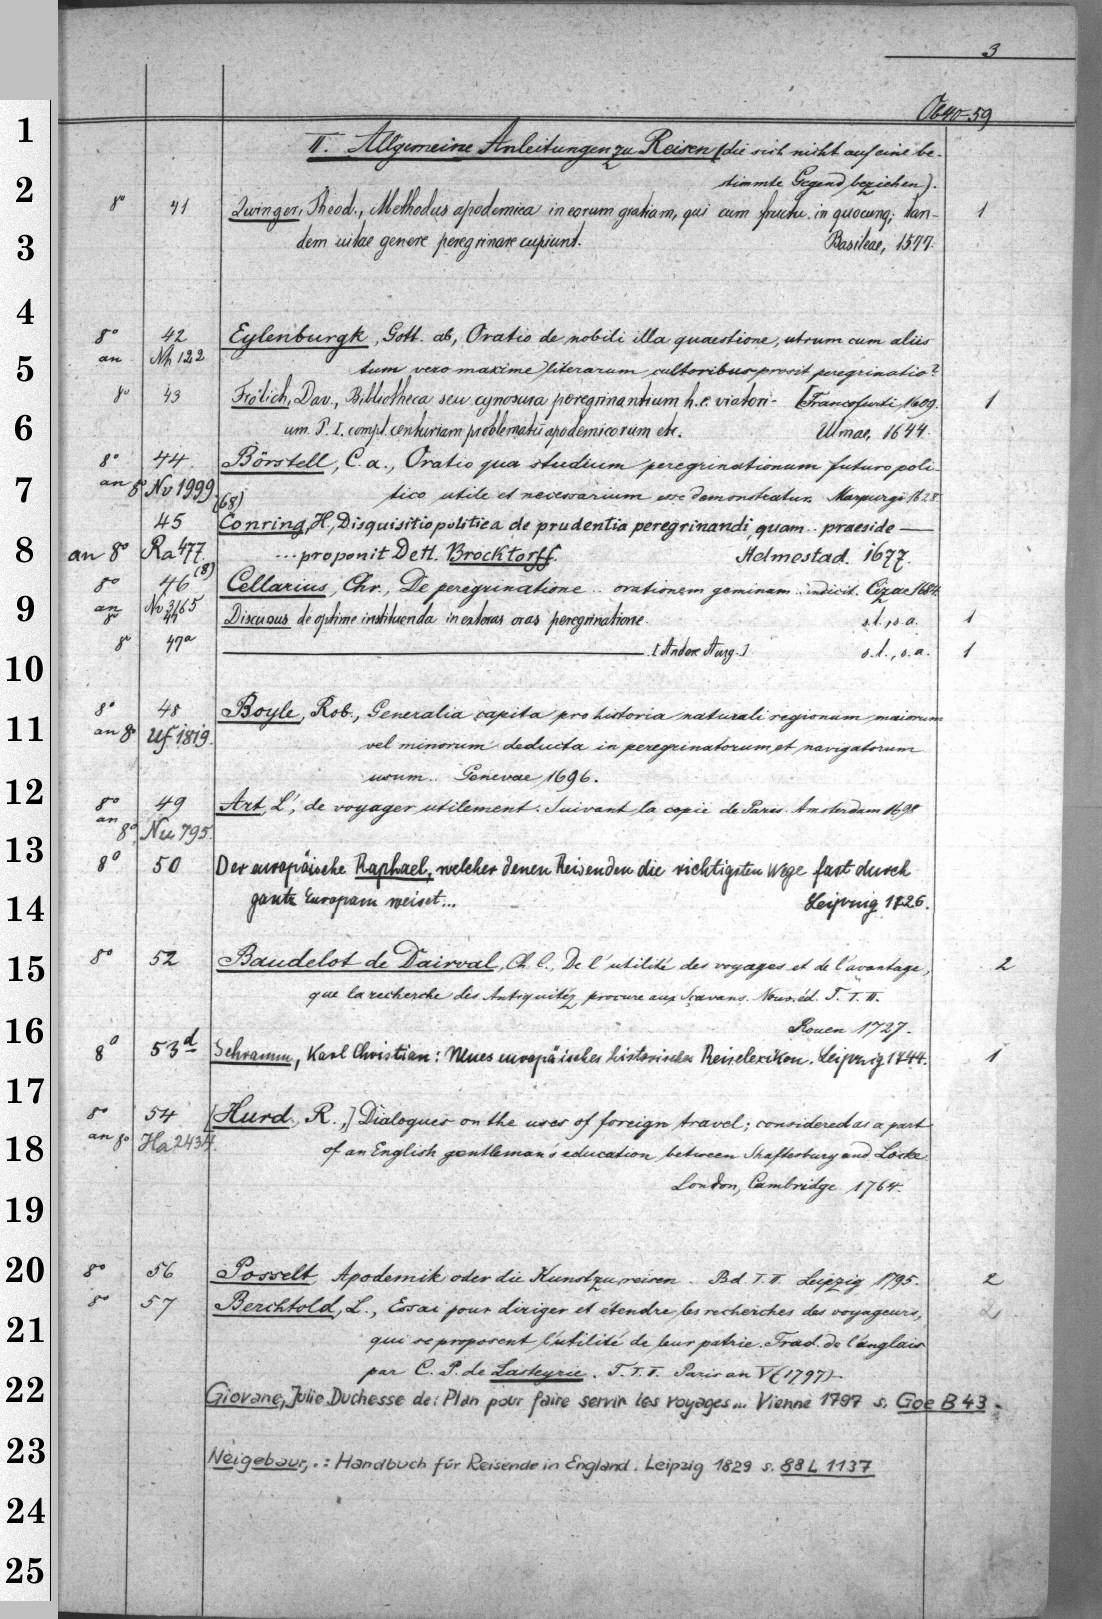 3
Ob 40-59
1
II. Allgemeine Anleitungen zu Reisen (die sich nicht auf eine be-
2
stimmte Gegend beziehen).
8° 41 Zwinger, Theod., Methodus apodemica in eorum gratiam, qui cum fructu in quocunq; tan- 1
3
dem uitae genere peregrinare cupiunt. Basileae, 1577.
4
8° 42 Eylenburgk, Gott. ab, Oratio de nobili illa quaestione, utrum cum aliis
an Nh 122
5
tum vero maxime literarum cultoribus prosit peregrinatio?
8° 43 Frölich, Dav., Bibliotheca seu cynosura peregrinantium h. e. viatori- [Francofurti, 1609. 1
6
um. P. I. compl. centuriam problematū apodemicorum etc. Ulmae, 1644.
8° 44 Börstell, C. a., Oratio qua studium peregrinationum futuro poli-
7
an 8° Nv 1999 (68) tico utile et necessarium esse demonstratur. Marpurgi 1628
45 Conring, H, Disquisitio politica de prudentia peregrinandi, quam .. praeside —
8
an 8° Ra 477. (8) ... proponit Detl. Brocktorff. Helmestad. 1677.
8° 46 Cellarius, Chr., De peregrinatione .. orationem geminam .. indicit. Cizae 1684.
an Nv 3165
9
8° 47 Discursus de optime instituenda in exteras oras peregrinatione. s. l., s. a. 1
8° 47a —— [Andere Ausg.] s. l., s. a. 1
10
8° 48 Boyle, Rob., Generalia capita pro historia naturali regionum maiorum
11
an 8° Uf 1819. vel minorum deducta in peregrinatorum, et navigatorum
usum.. Genevae 1696.
12
8° 49 Art, L', de voyager utilement. Suivant la copie de Paris. Amsterdam 1698
an 8° Nu 795.
13
8° 50 Der europäische Raphael, welcher denen Reisenden die richtigsten Wege fast durch
14
gantz Europam weiset... Leipzig 1726.
15
8° 52 Baudelot de Dairval, Ch. C., De l'utilité des voyages et de l'avantage, 2
que la recherche des Antiquitéz procure aux Sçavans. Nouv. éd. T. I. II.
16
Rouen 1727.
8° 53d Schramm, Karl Christian: Neues europäisches historisches Reiselexikon. Leipzig 1744. 1
17
8° 54 [Hurd, R.,] Dialogues on the uses of foreign travel; considered as a part
18
an 8° Ha 2434. of an English gentleman's education between Shaftesbury and Locke.
London, Cambridge 1764.
19
20
8° 56 Posselt, Apodemik oder die Kunst zu reisen. Bd. I. II. Leipzig 1795. 2
8° 57 Berchtold, L., Essai pour diriger et étendre les recherches des voyageurs, 2
21
qui se proposent l'utilité de leur patrie. Trad. de l'anglais
par C. P. de Lasteyrie. T. I. II. Paris an V (1797).
22
Giovane, Julie Duchesse de: Plan pour faire servir les voyages... Vienne 1797 s. Goe B 43.
23
Neigebaur, .: Handbuch für Reisende in England. Leipzig 1829 s. 88 L 1137
24
25